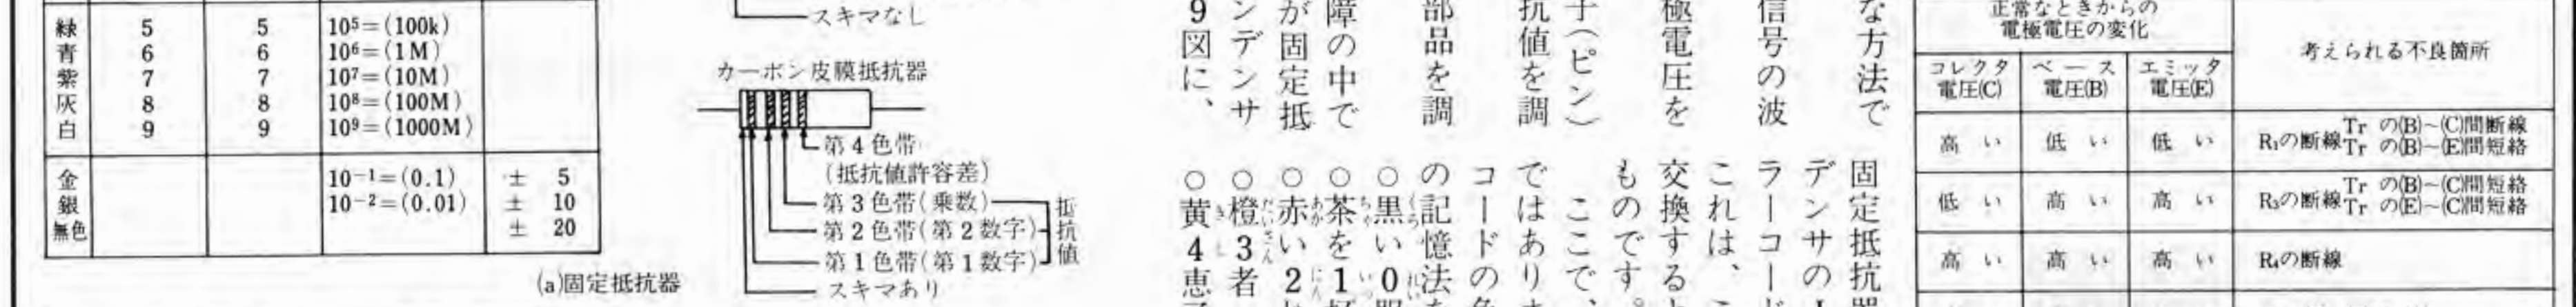 緑 5 5 10⁵=(100k)
青 6 6 10⁶=(1M)
紫 7 7 10⁷=(10M)
灰 8 8 10⁸=(100M)
白 9 9 10⁹=(1000M)
金 10⁻¹=(0.1) ± 5
銀 10⁻²=(0.01) ± 10
無色 ± 20
スキマなし
カーボン皮膜抵抗器
第4色帯
(抵抗値許容差)
第3色帯(乗数)
第2色帯(第2数字)
第1色帯(第1数字)
抵抗値
スキマあり
(a)固定抵抗器
な方法で
信号の波
極電圧を
子(ピン)
抗値を調
部品を調
障の中で
が固定抵
ンデンサ
9図に、
固定抵抗器
デンサの
ラーコード
これは、
交換すると
ものです。
ここで、
ではあり
コードの色
の記憶法を
○黒い0
○茶を1
○赤い2
○橙3者
○黄4恵
正常なときからの
電極電圧の変化
考えられる不良箇所
コレクタ電圧(C) ベース電圧(B) エミッタ電圧(E)
高い 低い 低い R₁の断線 Trの(B)~(C)間断線
Trの(B)~(E)間短絡
低い 高い 高い R₃の断線 Trの(B)~(C)間短絡
Trの(E)~(C)間短絡
高い 高い 高い R₄の断線